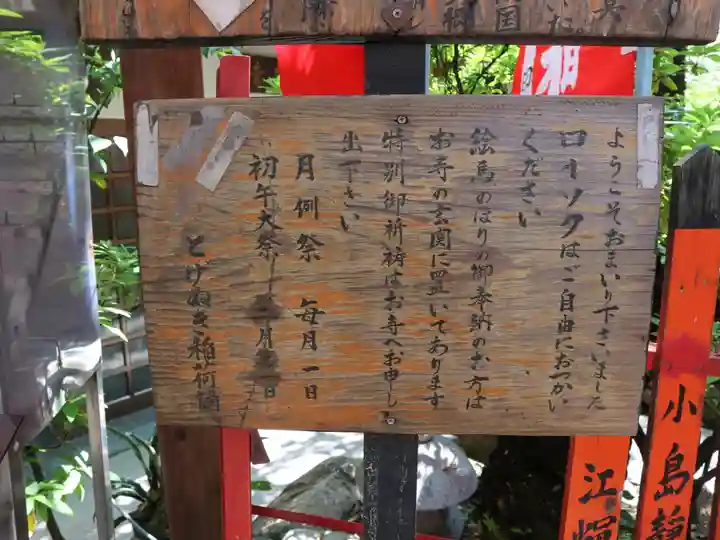 ようこそおまいり下さいました
ロ–ソクはご自由におつかい
ください
絵馬のぼりの御奉納のお方は
お寺の玄関に置いてあります
特別御祈祷はお寺へお申し
出下さい
月例祭 毎月一日
初午大祭 月 日
とげぬき稲荷
小島
江
国